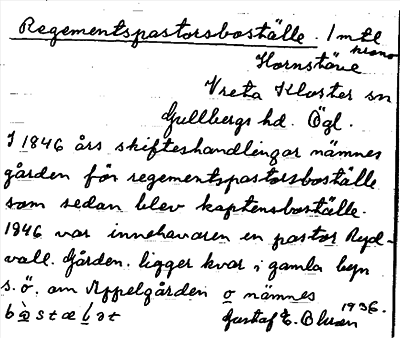 Regementspastorsboställe. 1 mtl
krono
Hornstäve
Vreta Kloster sn
Gullbergs hd. Ögl.
I 1846 års skifteshandlingar nämnes
gården för regementspastorsboställe
som sedan blev kaptensboställe.
1846 var innehavaren en pastor Ryd-
vall. Gården ligger kvar i gamla byn
s.ö. om Appelgården o nämnes
1936.
bòstælǝt Gustaf E. Olsson